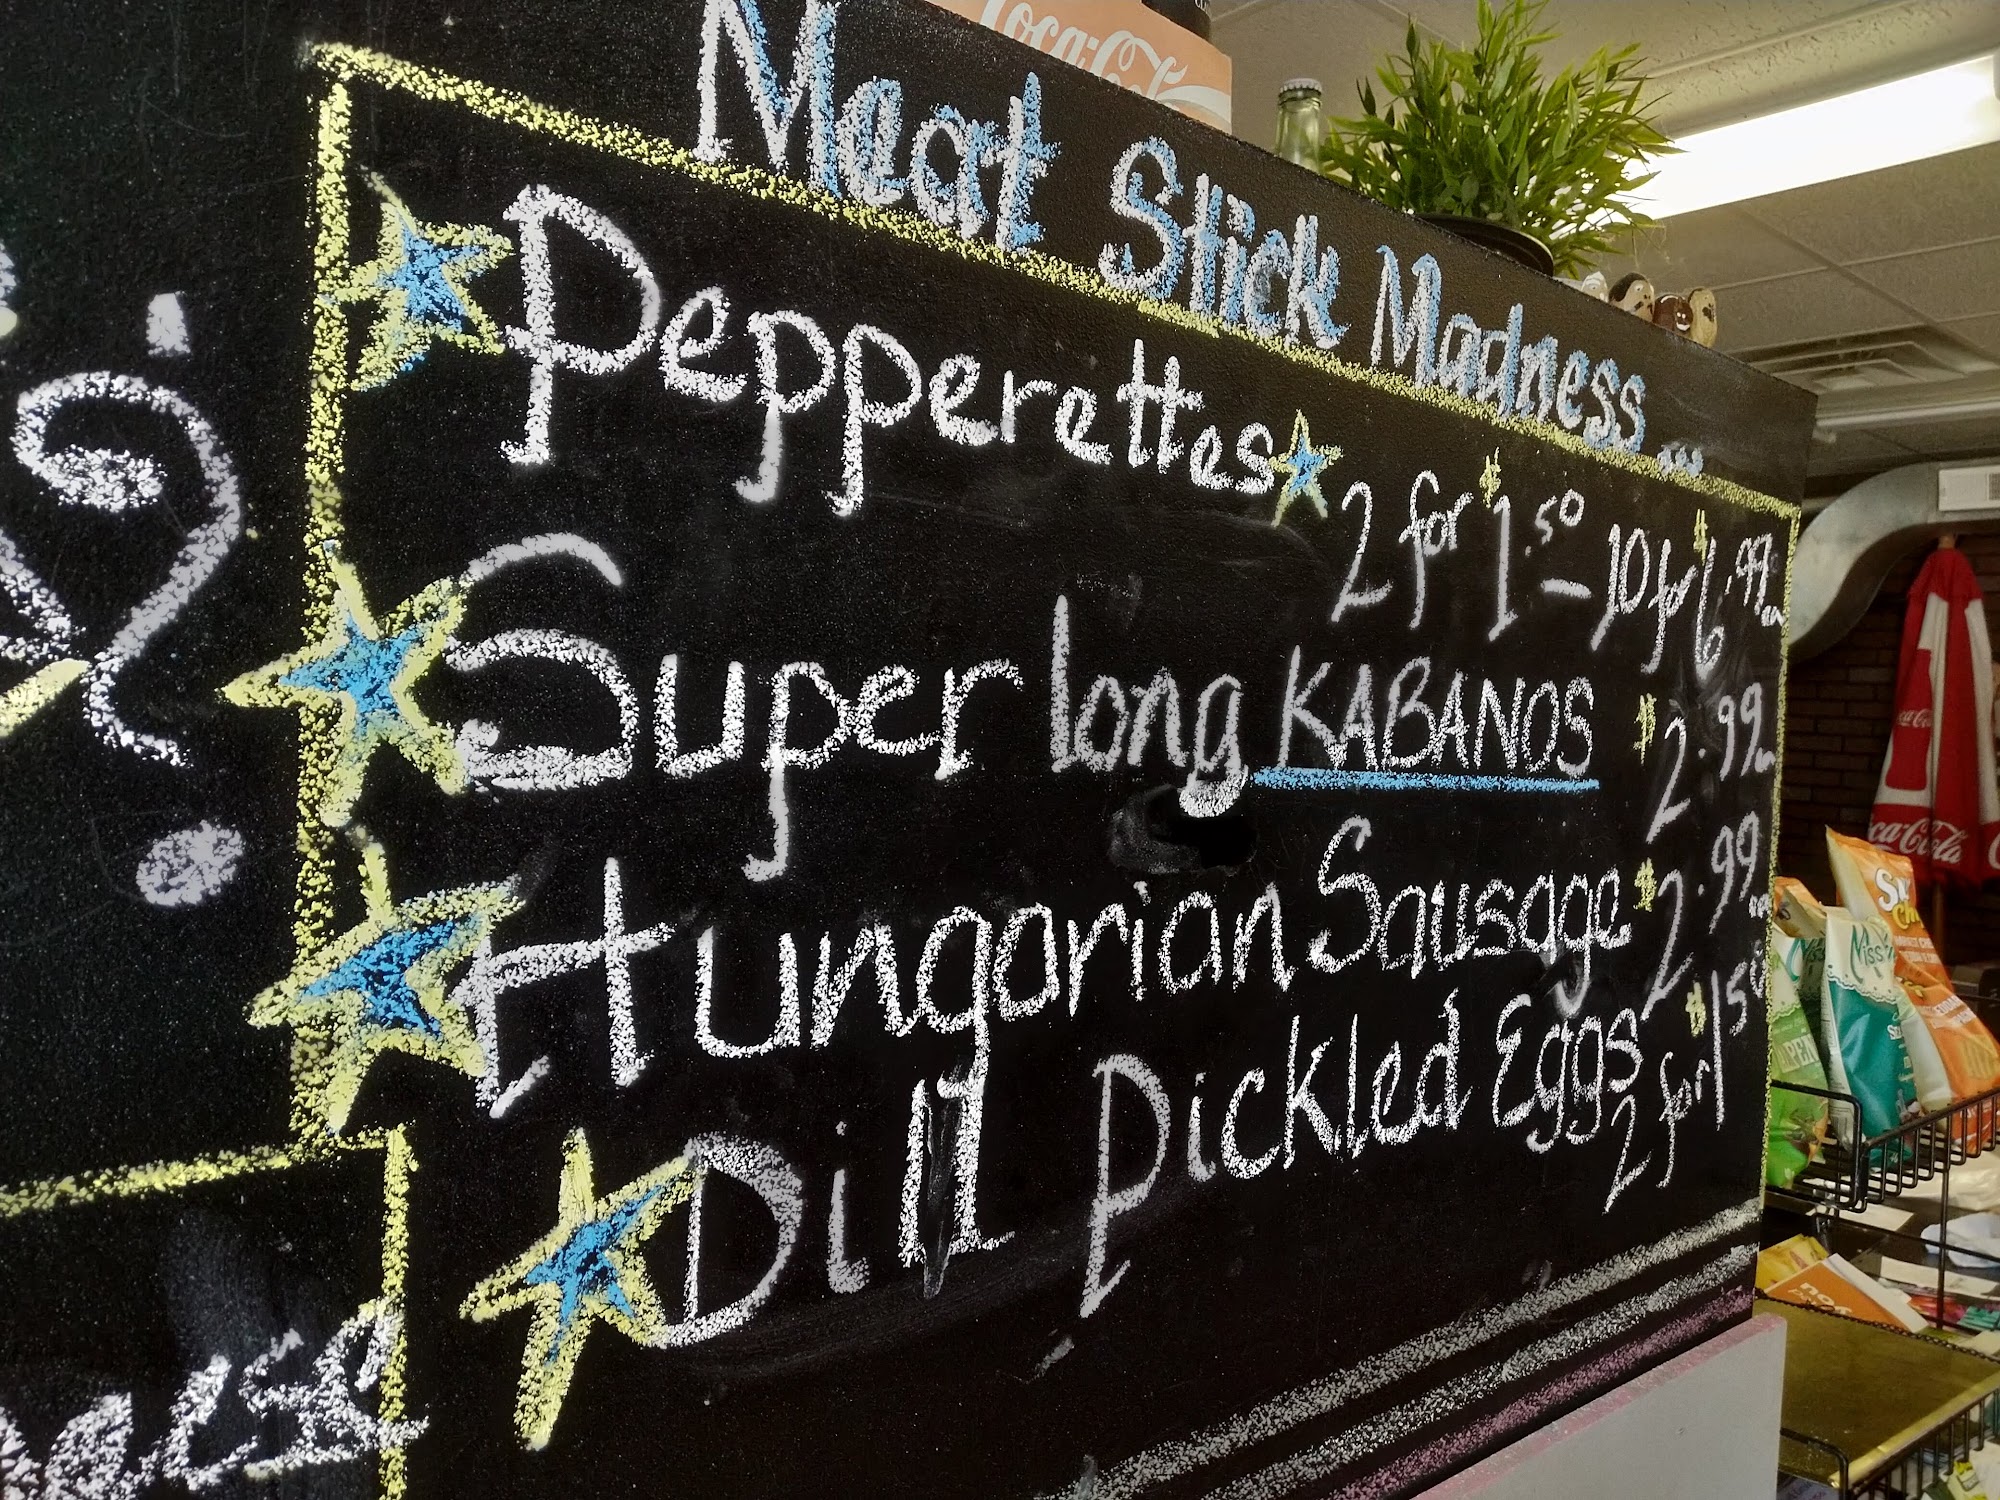 Coca-Cola
Meat Stick Madness...
Pepperettes 2 for $1.50 - 10 for $6.99
Super long KABANOS $2.99 ea
Hungarian Sausage $2.99 ea
Dill Pickled Eggs 2 for $1.50
Coca-Cola
Miss